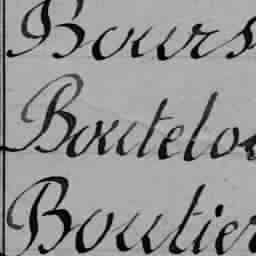 Bours
Boutelo
Boutier